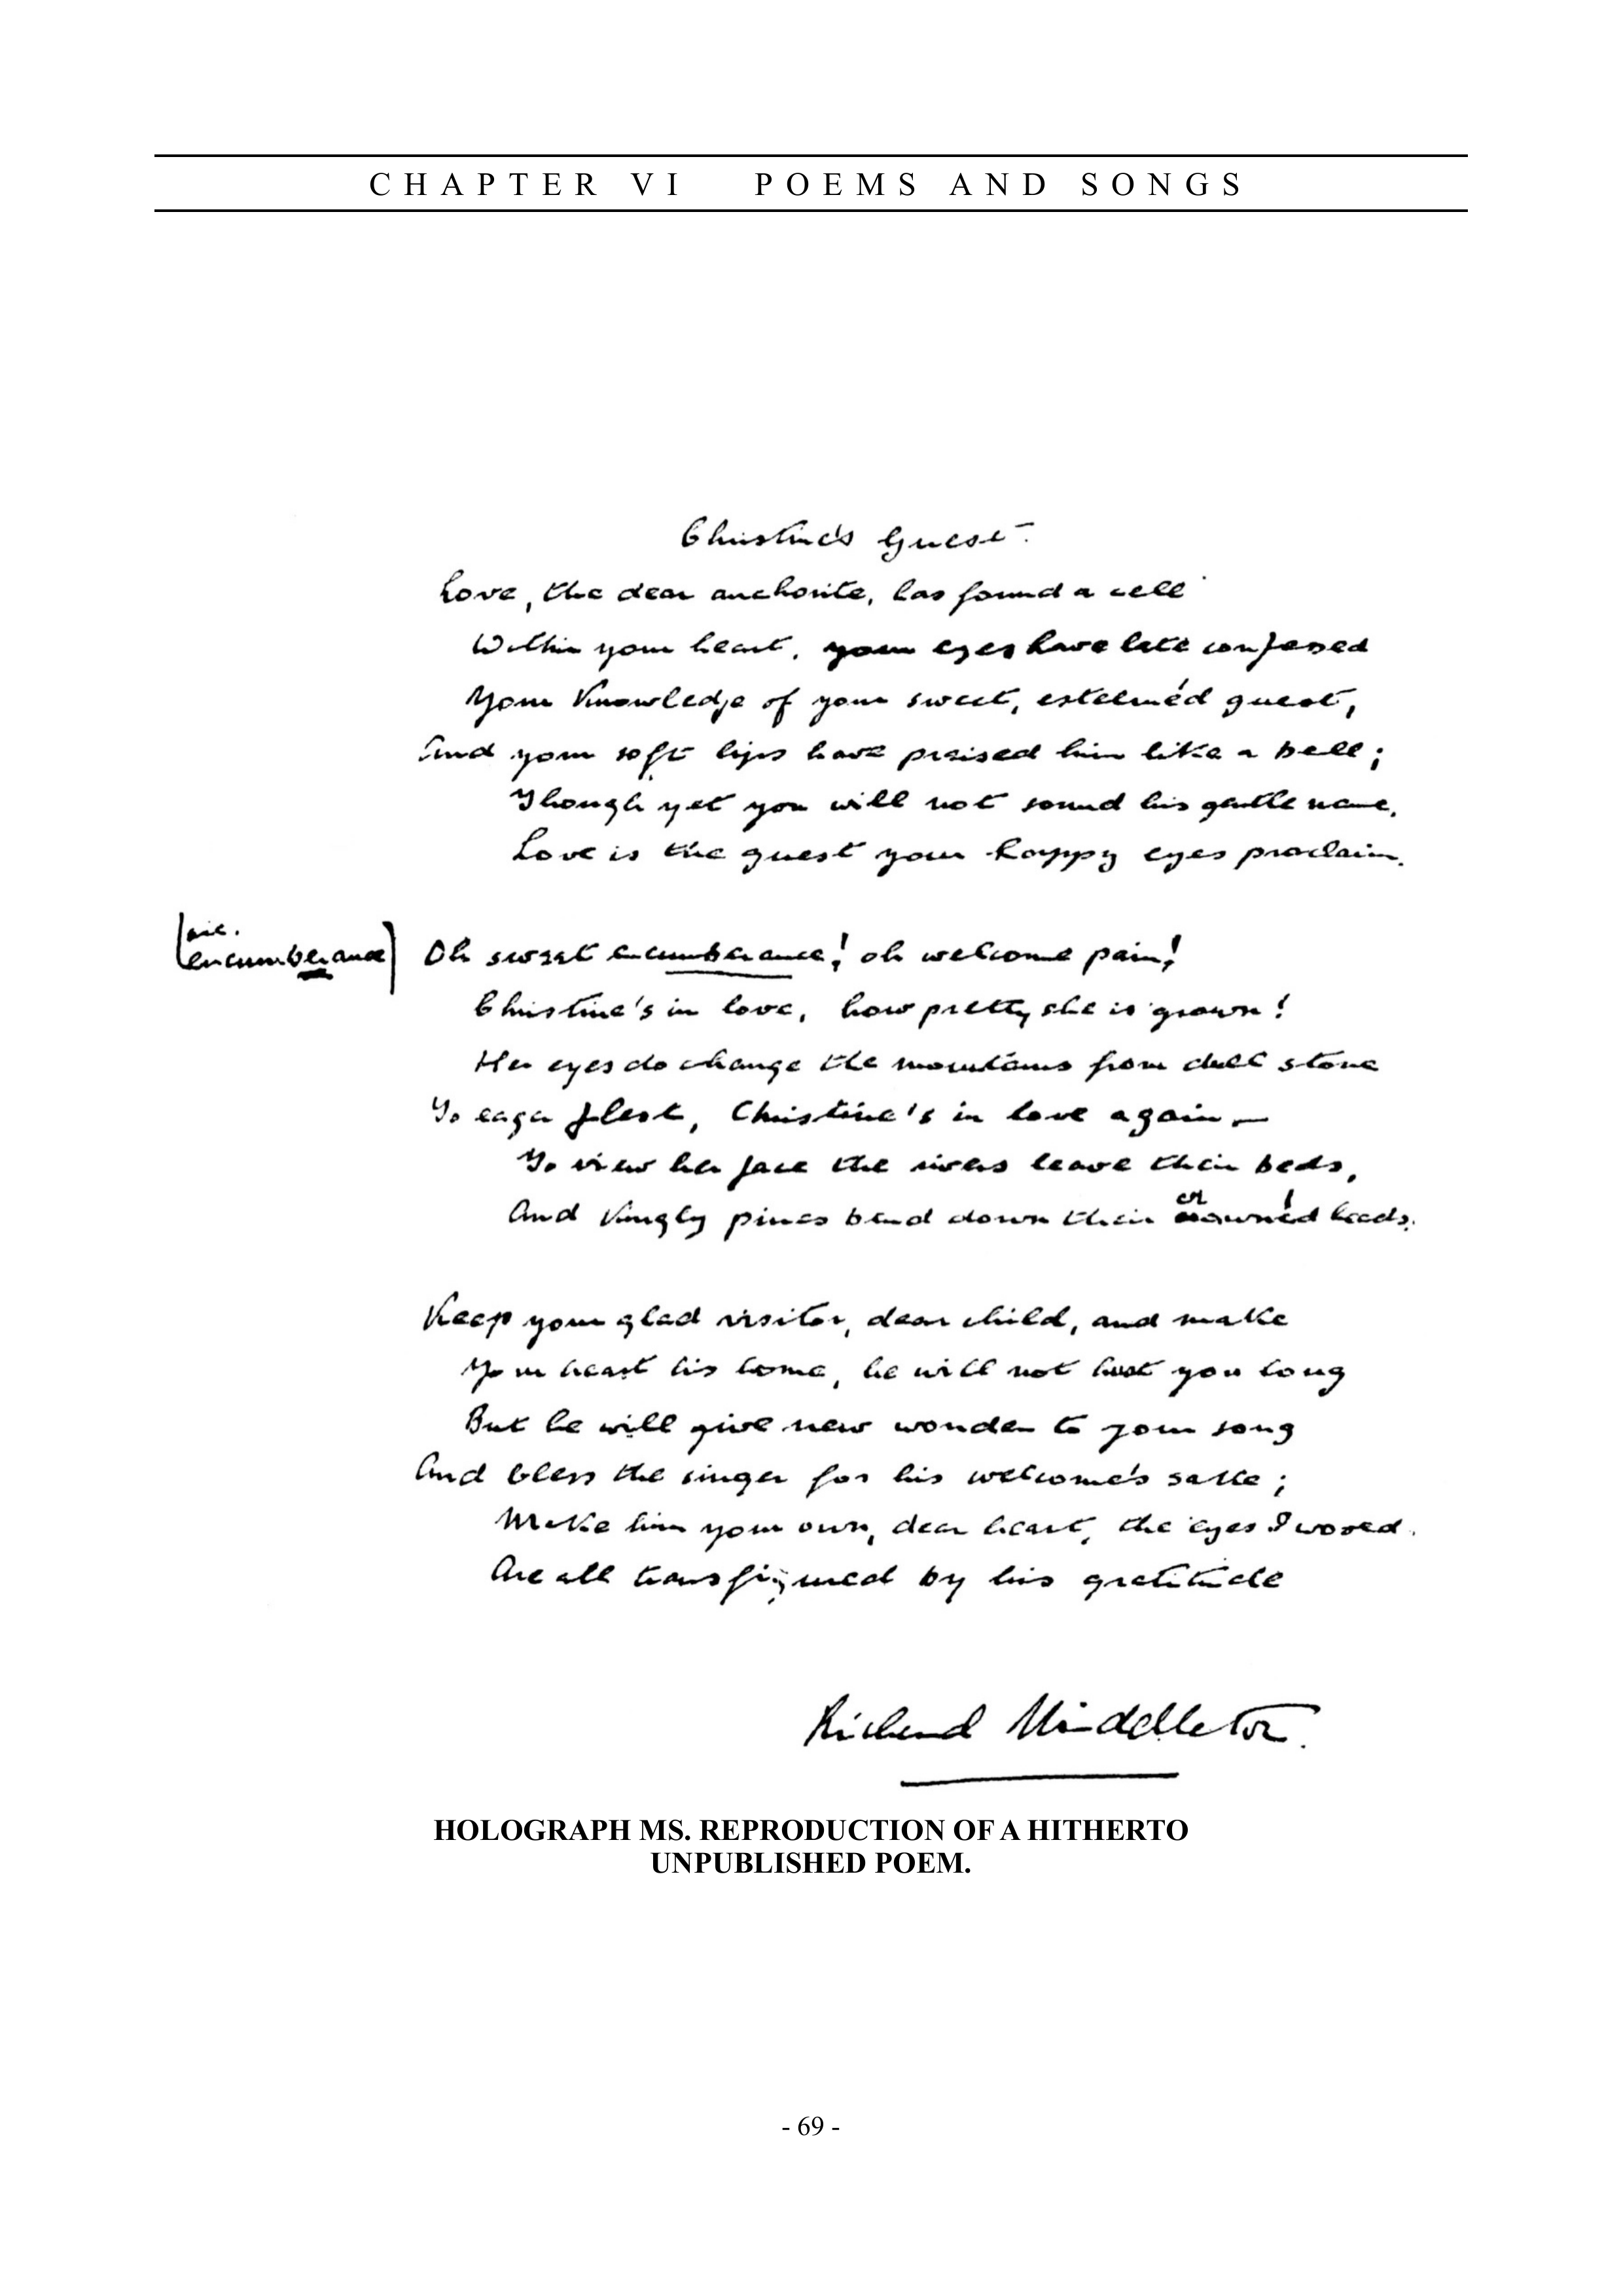 CHAPTER VI POEMS AND SONGS
Christine's Guest.
Love, the dear anchorite, has found a cell
Within your heart, your eyes have late confessed
Your knowledge of your sweet, esteeméd guest,
And your soft lips have praised him like a bell;
Though yet you will not sound his gentle name,
Love is the guest your happy eyes proclaim.
[sic.
encumberance]
Oh sweet encumberance! oh welcome pain!
Christine's in love, how pretty she is grown!
Her eyes do change the mountains from dull stone
To eager flesh, Christine's in love again —
To view her face the rivers leave their beds,
And kingly pines bend down their crownéd heads.
Keep your glad visitor, dear child, and make
Your heart his home, he will not hurt you long
But he will give new wonder to your song
And bless the singer for his welcome's sake;
Make him your own, dear heart, the eyes I wooed.
Are all transfigured by his gratitude
Richard Middleton.
HOLOGRAPH MS. REPRODUCTION OF A HITHERTO
UNPUBLISHED POEM.
- 69 -